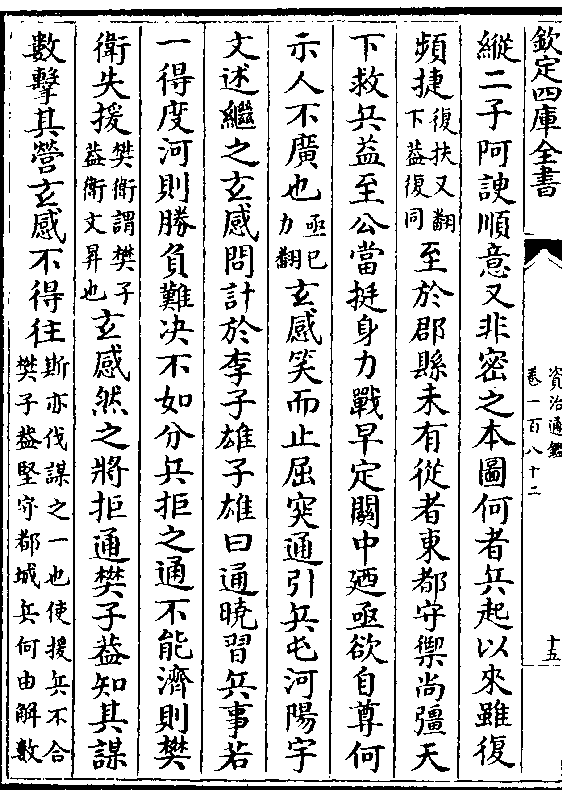 欽定四庫全書
資治通鑑
卷一百八十二
十五
縱二子阿諛順意又非密之本圖何者兵起以來雖復
頻捷復扶又翻下益復同至於郡縣未有從者東都守禦尚彊天
下救兵益至公當挺身力戰早定關中廼亟欲自尊何
示人不廣也亟已力翻玄感笑而止屈突通引兵屯河陽宇
文述繼之玄感問計於李子雄子雄曰通曉習兵事若
一得度河則勝負難決不如分兵拒之通不能濟則樊
衛失援樊衛謂樊子益衛文昇也玄感然之將拒通樊子益知其謀
數擊其營玄感不得往斯亦伐謀之一也使援兵不合樊子益堅守都城兵何由解數